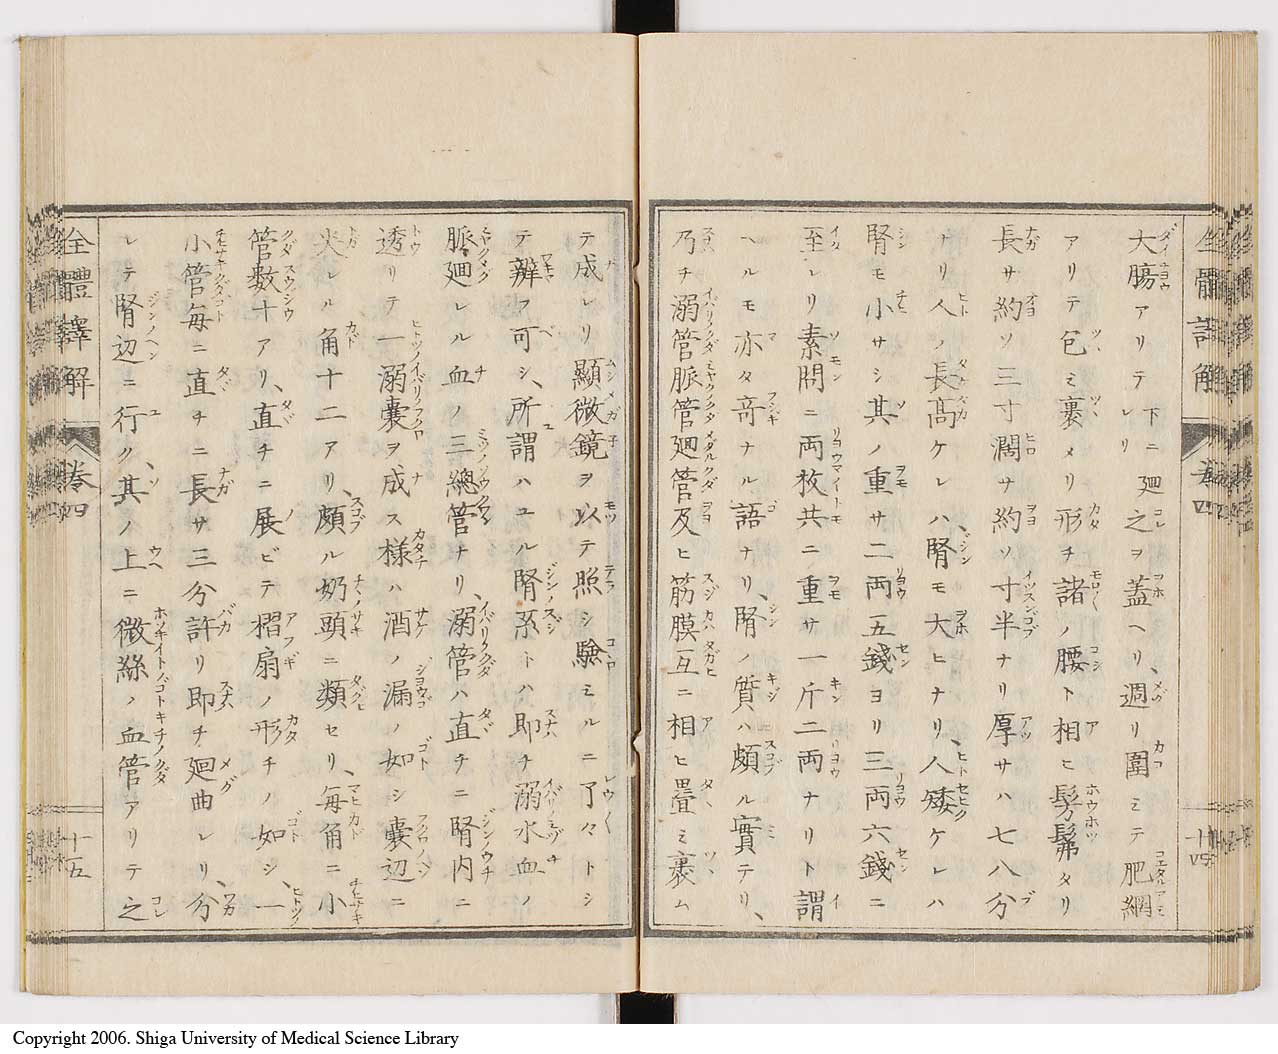 大腸アリテ下ニ廻レリ之ヲ蓋ヘリ、週リ圍ミテ肥網
アリテ包ミ裹メリ形チ諸ノ腰ト相ヒ髣髴タリ
長サ約ソ三寸濶サ約ソ寸半ナリ厚サハ七八分
ナリ人ノ長髙ケレハ、腎モ大ヒナリ、人矮ケレハ
腎モ小サシ其ノ重サ二両五錢ヨリ三両六錢ニ
至レリ素問ニ両枚共ニ重サ一斤二両ナリト謂
ヘルモ亦タ竒ナル語ナリ、腎ノ質ハ頗ル實テリ、
乃チ溺管脈管廻管及ヒ筋膜互ニ相ヒ畳ミ裹ム
テ成レリ顯微鏡ヲ以テ照シ驗ミルニ了々トシ
テ辨ア可シ、所謂ハユル腎系トハ即チ溺水血ノ
脈、廻レル血ノ三總管ナリ、溺管ハ直チニ腎内ニ
透リテ一溺嚢ヲ成ス様ハ酒ノ漏ノ如シ嚢辺ニ
尖レル角十二アリ、頗ル奶頭ニ類セリ、毎角ニ小
管数十アリ、直チニ展ビテ摺扇ノ形チノ如シ、一
小管毎ニ直チニ長サ三分許リ即チ廻曲レリ、分
レテ腎辺ニ行ク其ノ上ニ微絲ノ血管アリテ之
全體譯解 巻四 十五
Copyright 2006. Shiga University of Medical Science Library